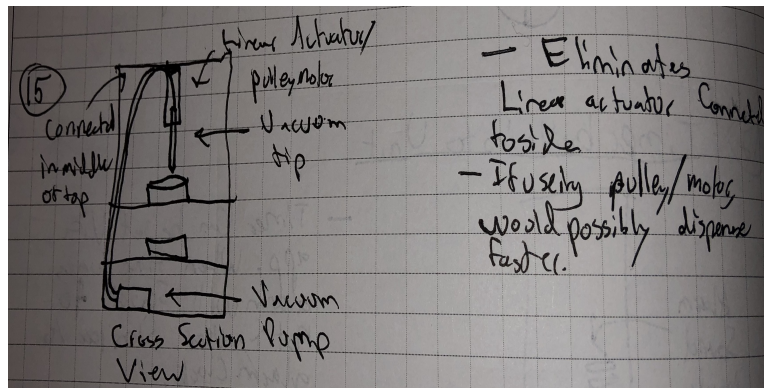 15
Linear Actuator/
pulley motor
Connected
in middle
of top
Vacuum
tip
Vacuum
Pump
Cross Section
View
- Eliminates
Linear actuator Connected
to side
- If using pulley/motor,
would possibly dispense
faster.